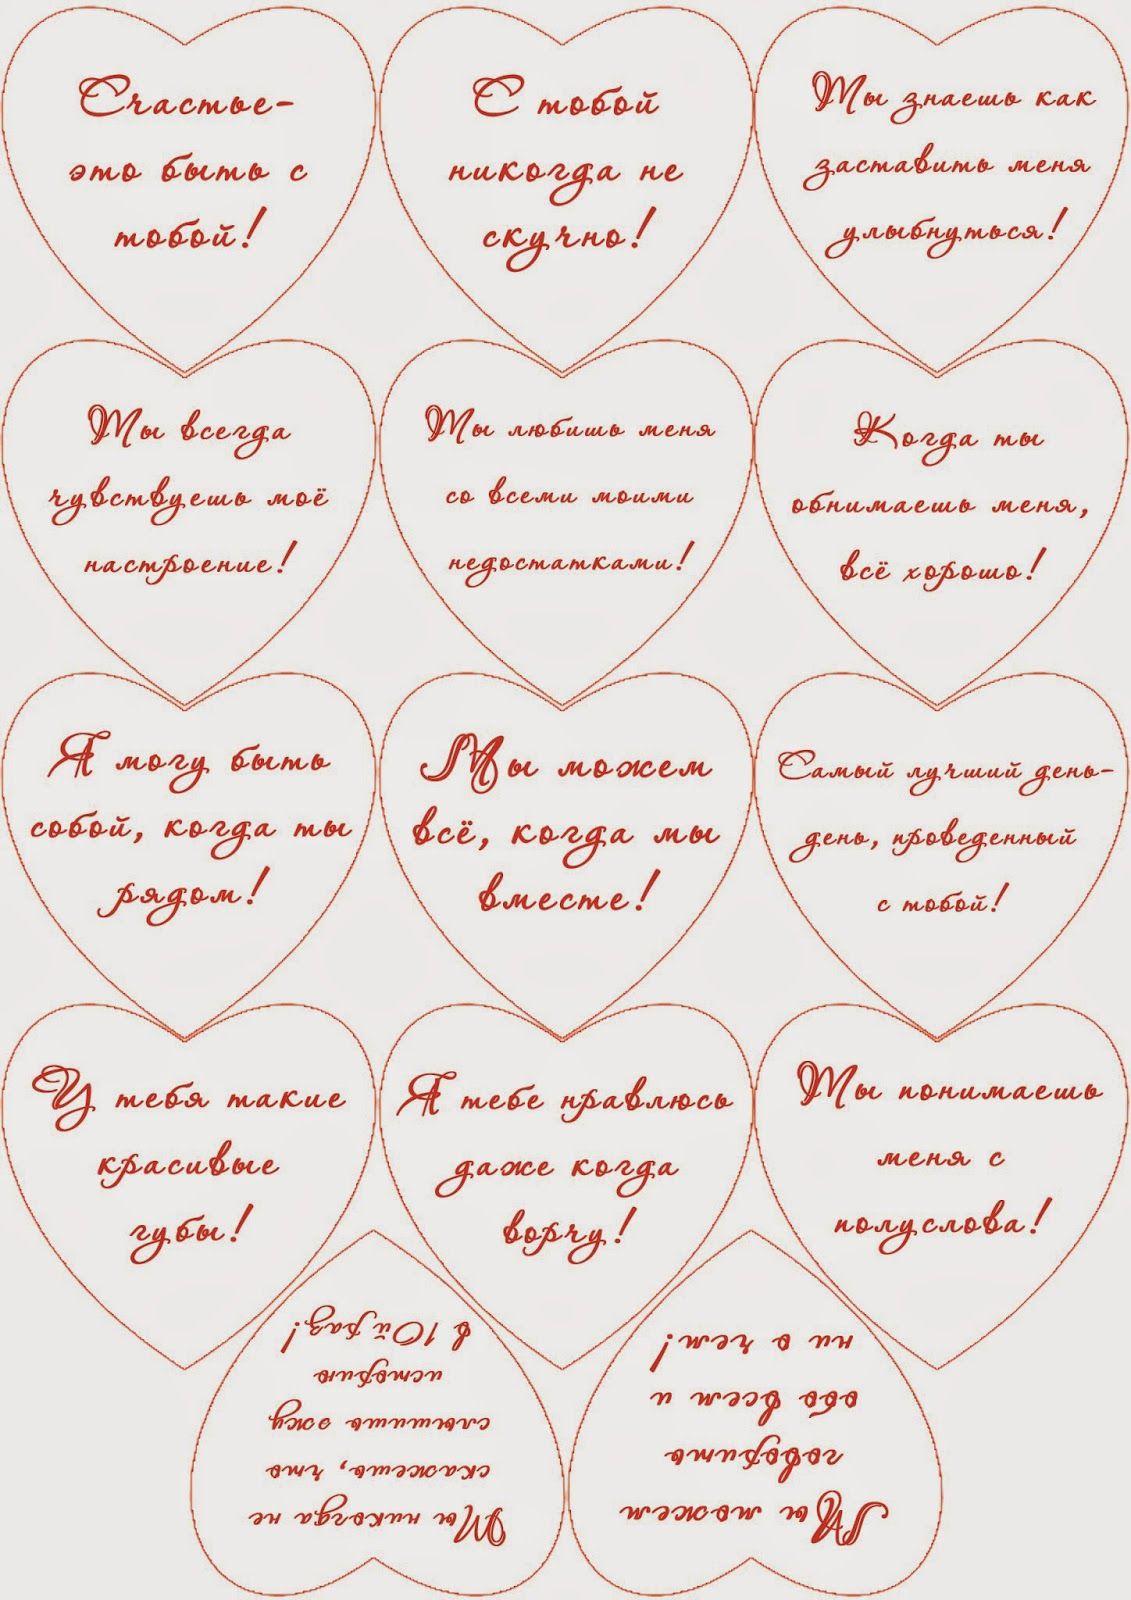 Счастье-
это быть с
тобой!
С тобой
никогда не
скучно!
Ты знаешь как
заставить меня
улыбнуться!
Ты всегда
чувствуешь моё
настроение!
Ты любишь меня
со всеми моими
недостатками!
Когда ты
обнимаешь меня,
всё хорошо!
Я могу быть
собой, когда ты
рядом!
Мы можем
всё, когда мы
вместе!
Самый лучший день-
день, проведенный
с тобой!
У тебя такие
красивые
губы!
Я тебе нравлюсь
даже когда
ворчу!
Ты понимаешь
меня с
полуслова!
Ты никогда не
скажешь, что
слышишь эту
историю
в 10й раз!
Мы можем
говорить
обо всем и
ни о чем!